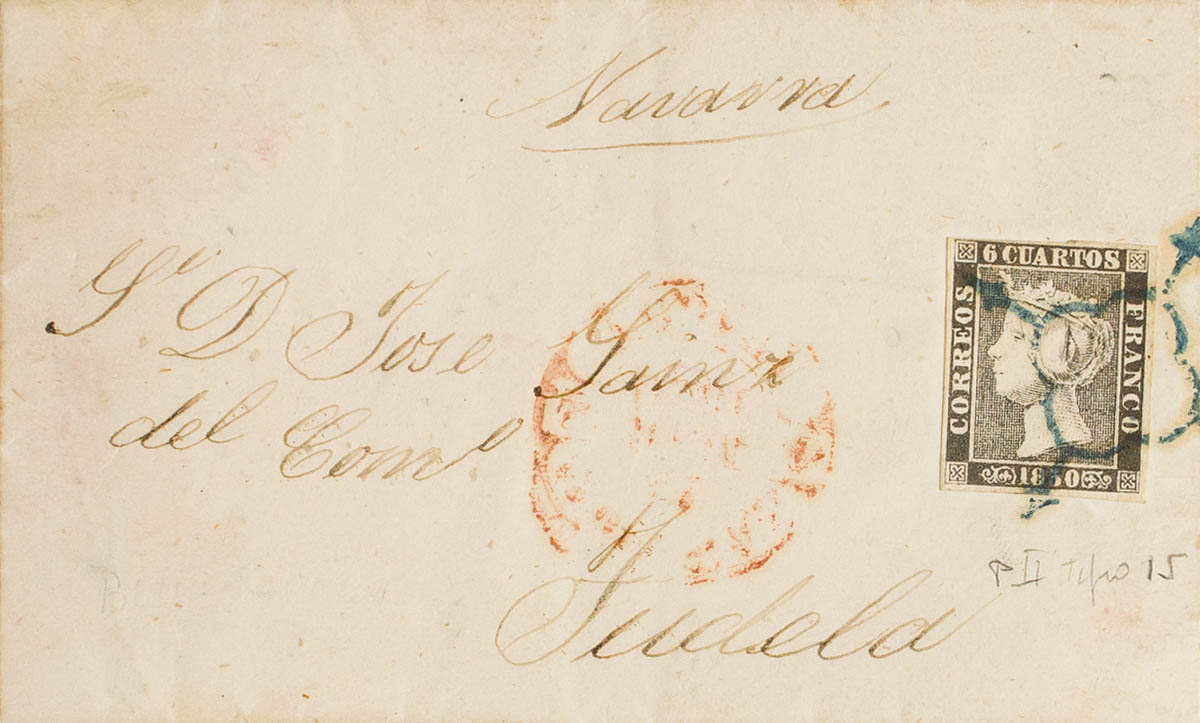 Navarra
Sr. D. Jose Sainz
del Como.
Tudela
6 CUARTOS
CORREOS
FRANCO
1850
P II tipo 15